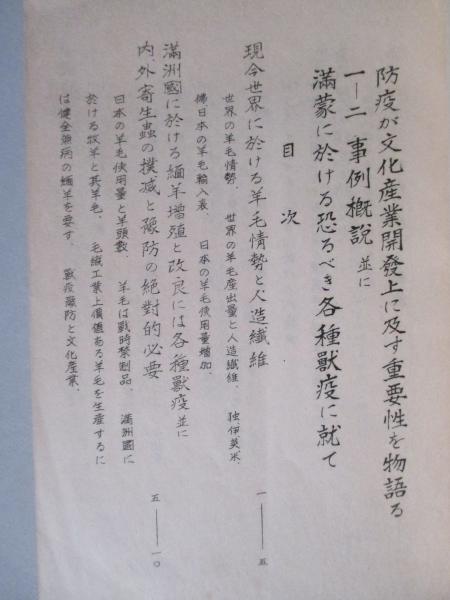 防疫が文化産業開發上に及す重要性を物語る
一―二 事例概說 並に
滿蒙に於ける恐るべき各種獸疫に就て
目次
現今世界に於ける羊毛情勢と人造纖維 一――五
世界の羊毛情勢、 世界の羊毛産出量と人造纖維、 独伊英米、
佛日本の羊毛輸入表、 日本の羊毛使用量増加、
滿洲國に於ける緬羊増殖と改良には各種獸疫並に
内、外寄生蟲の撲滅と豫防の絶對的必要 五――一〇
日本の羊毛使用量と羊頭數、 羊毛は戰時禁制品、 滿洲國に
於ける牧羊と其羊毛、 毛織工業上價値ある羊毛を生産するに
は健全無病の緬羊を要す、 獸疫豫防と文化産業、